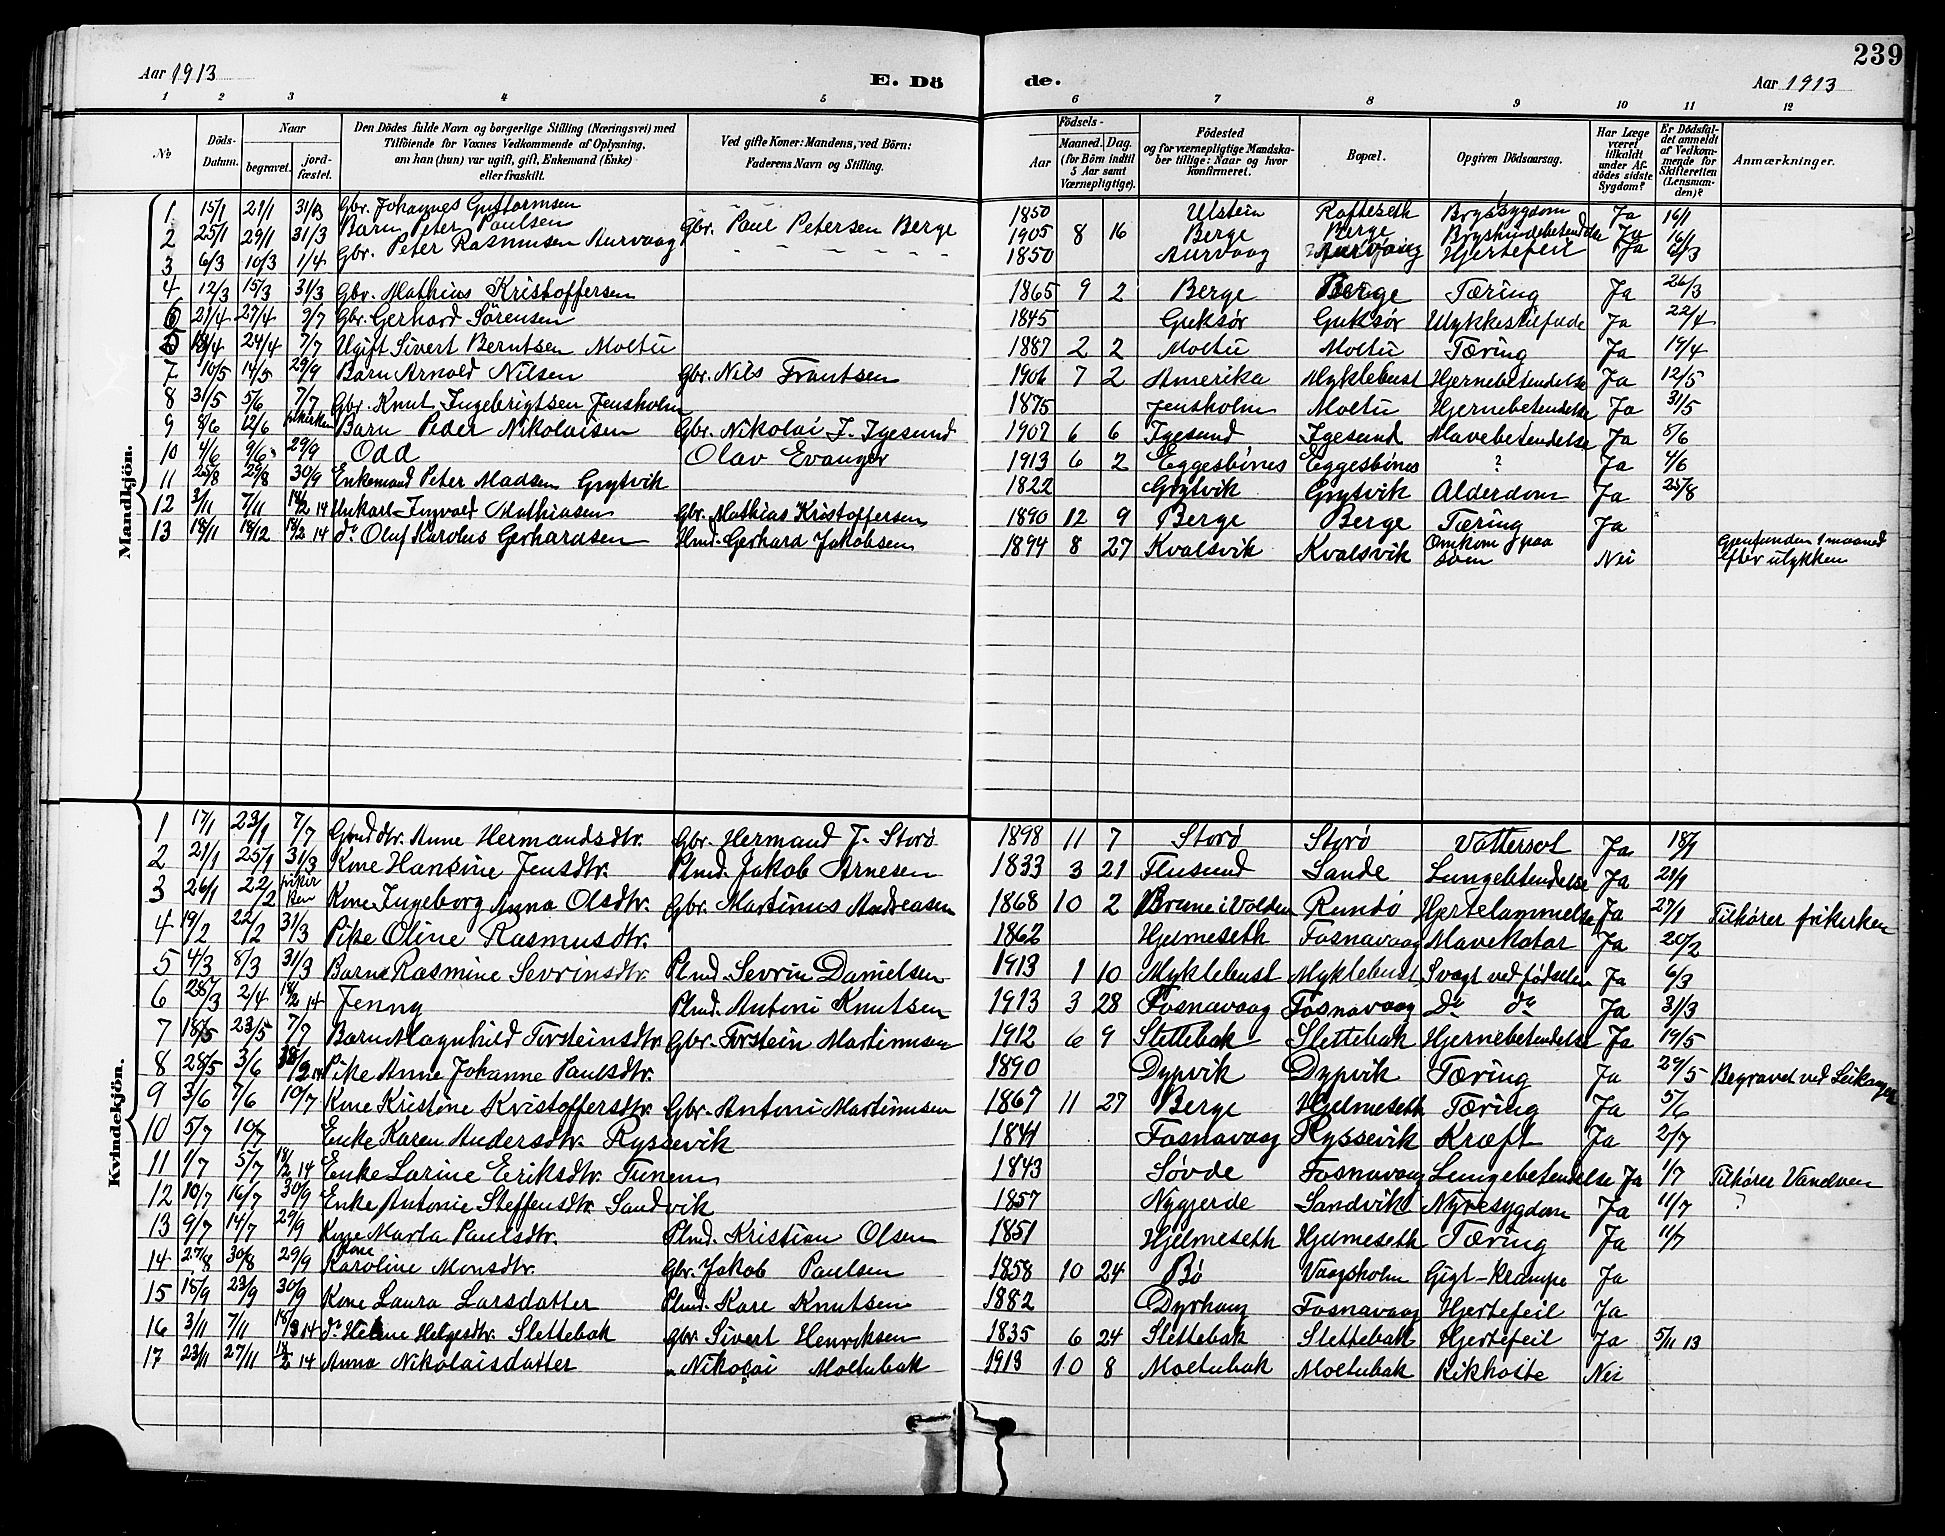 239
Aar 1913
E. Dö
de.
Aar 1913
1 2 3 4 5 6 7 8 9 10 11 12
No
Döds-Datum.
Naar
begravet.
jord-fæstet.
Den Dödes fulde Navn og borgerlige Stilling (Næringsvei) med
Tilföiende for Voxnes Vedkommende af Oplysning,
om han (hun) var ugift, gift, Enkemand (Enke)
eller fraskilt.
Ved gifte Koner: Mandens, ved Börn:
Faderens Navn og Stilling.
Födsels-
Aar
Maaned. Dag.
(for Börn indtil
5 Aar samt
Værnepligtige).
Födested
og for værnepligtige Mandska-
ber tillige: Naar og hvor
konfirmeret.
Bopæl.
Opgiven Dödsaarsag.
Har Læge
været
tilkaldt
under Af-
dödes sidste
Sygdom?
Er Dödsfal-
det anmeldt
af Vedkom-
mende for
Skifteretten
(Lensman-
den)?
Anmærkninger.
Mandkjön.
1 15/1 21/1 31/3 Gbr. Johannes Guttormsen 1850 Ulstein Rafteseth Brystsygdom Ja 16/1
2 25/1 29/1 31/3 Barn Peter Paulsen Gbr. Paul Petersen Berge 1905 8 16 Berge Berge Brysthindebetendelse Ja
3 6/3 10/3 1/4 Gbr. Peter Rasmusen Aurvaag 1850 Aurvaag Aurvaag Hjertefeil Ja 6/3
4 12/3 15/3 31/3 Gbr. Mathias Kristoffersen 1865 9 2 Berge Berge Tæring Ja 26/3
6 21/4 27/4 9/7 Gbr. Gerhard Sörensen 1845 Guksør Guksør Ulykkestilfælde Ja 22/4
5 18/4 24/4 7/7 Ugift Sivert Berntsen Moltu 1887 2 2 Moltu Moltu Tæring Ja 19/4
7 10/5 14/5 29/9 Barn Arnold Nilsen Gbr. Nils Frantsen 1906 7 2 Amerika Myklebust Hjernebetendelse Ja 12/5
8 31/5 5/6 7/7 Gbr. Knut Ingebrigtsen Jensholm 1875 Jensholm Moltu Hjernebetendelse Ja 31/5
9 8/6 12/6 frikirken Barn Peder Nikolaisen Gbr. Nikolai J. Igesund 1907 6 6 Igesund Igesund Mavebetendelse Ja 8/6
10 4/6 9/6 29/9 Odd Olav Evanger 1913 6 2 Eggesbönes Eggesbönes ? Ja 4/6
11 25/8 29/8 30/9 Enkemand Peter Madsen Grytvik 1822 Grytvik Grytvik Alderdom Ja 25/8
12 3/11 7/11 18/2 14 Ungkarl Ingvald Mathiasen Gbr. Mathias Kristoffersen 1890 12 9 Berge Berge Tæring Ja
13 18/11 18/12 18/2 14 do Oluf Karolus Gerhardsen Plmd. Gerhard Jakobsen 1894 8 27 Kvalsvik Kvalsvik Omkom paa Nei Gjenfunden 1 maaned
söen efter ulykken
Kvindekjön.
1 17/1 23/1 7/7 Gmddtr. Anne Hermandsdtr. Gbr. Hermand J. Storø 1898 11 7 Storø Storø Vattersot Ja 18/1
2 21/1 25/1 31/3 Kone Hansine Jensdtr. Plmd. Jakob Arnesen 1833 3 21 Flusund Sande Lungebetendelse Ja 21/1
3 26/1 22/2 frikirken Kone Ingeborg Anna Olsdtr. Gbr. Martinus Andreasen 1868 10 2 Brune i Volden Rundö Hjertelammelse Ja 27/1 Tilhører frikirken
4 19/2 22/2 31/3 Pike Oline Rasmusdtr. 1862 Hjelmeseth Fosnavaag Mavekatar Ja 20/2
5 4/3 8/3 31/3 Barn Rasmine Sevrinsdtr. Plmd. Sevrin Danielsen 1913 1 10 Myklebust Myklebust Svagt ved födselen Ja 6/3
6 28/3 2/4 18/2 14 Jenny Plmd. Antoni Knutsen 1913 3 28 Fosnavaag Fosnavaag Do do Ja 31/3
7 18/5 23/5 7/7 Barn Magnhild Torsteinsdtr. Gbr. Torstein Martinusen 1912 6 9 Slettebak Slettebak Hjernebetendelse Ja 19/5
8 28/5 3/6 18/2 14 Pike Anne Johanne Paulsdtr. 1890 Dypvik Dypvik Tæring Ja 29/5 Begravet ved Leikanger
9 3/6 7/6 10/7 Kone Kristine Kristoffersdtr. Gbr. Antoni Martinusen 1867 11 27 Berge Hjelmeseth Tæring Ja 5/6
10 5/7 10/7 Enke Karen Andersdtr. Ryssevik 1841 Fosnavaag Ryssevik Kræft Ja 2/7
11 1/7 5/7 18/2 14 Enke Larine Eriksdtr. Tunem 1843 Søvde Fosnavaag Lungebetendelse Ja 1/7 Tilhører Vandven
12 10/7 16/7 30/9 Enke Antonie Steffensdtr. Sandvik 1857 Nygjerde Sandvik Nyresygdom Ja 11/7 ?
13 9/7 14/7 29/9 Kone Marta Paulsdtr. Plmd. Kristian Olsen 1851 Hjelmeseth Hjelmeseth Tæring Ja 11/7
14 27/8 30/8 29/9 Kone Karoline Monsdtr. Gbr. Jakob Paulsen 1858 10 24 Bö Vaagsholm Gigt-krampe Ja
15 18/9 23/9 30/9 Kone Laura Larsdatter Plmd. Kare Knutsen 1882 Dyrhaug Fosnavaag Hjertefeil Ja
16 3/11 7/11 18/3 14 do Helene Helgesdtr. Slettebak Gbr. Sivert Henriksen 1835 6 24 Slettebak Slettebak Hjertefeil Ja 5/11 13
17 23/11 27/11 18/2 14 Anna Nikolaisdatter " Nikolai Moltubak 1913 10 8 Moltubak Moltubak Kikhoste Nei